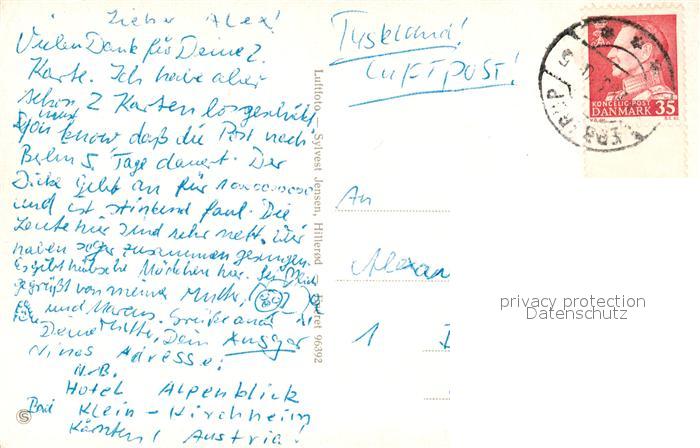 Lieber Alex!
Vielen Dank für Deine 2.
Karte. Ich habe aber
schon 2 Karten losgeschickt
You must know, daß die Post nach
Berlin 5 Tage dauert. Der
Dicke gibt an für 1000000000
und ist stinkend faul. Die
Leute hier sind sehr nett. Wir
haben sogar zusammen gesungen.
Es gibt hübsche Mädchen hier. Sei
gegrüßt von meiner Mutter,
und Marcus. Grüße auch
Deine Mutter, Dein Ansgar
Ninas Adresse:
N.B.
Hotel Alpenblick
Bad Klein-Kirchheim
Kärnten, Austria!
Luftfoto, Sylvest Jensen, Hillerød Eneret 96392
Tyskland!
LUFTPOST!
KONGELIG·POST
DANMARK 35
An
Alexan
1
privacy protection
Datenschutz